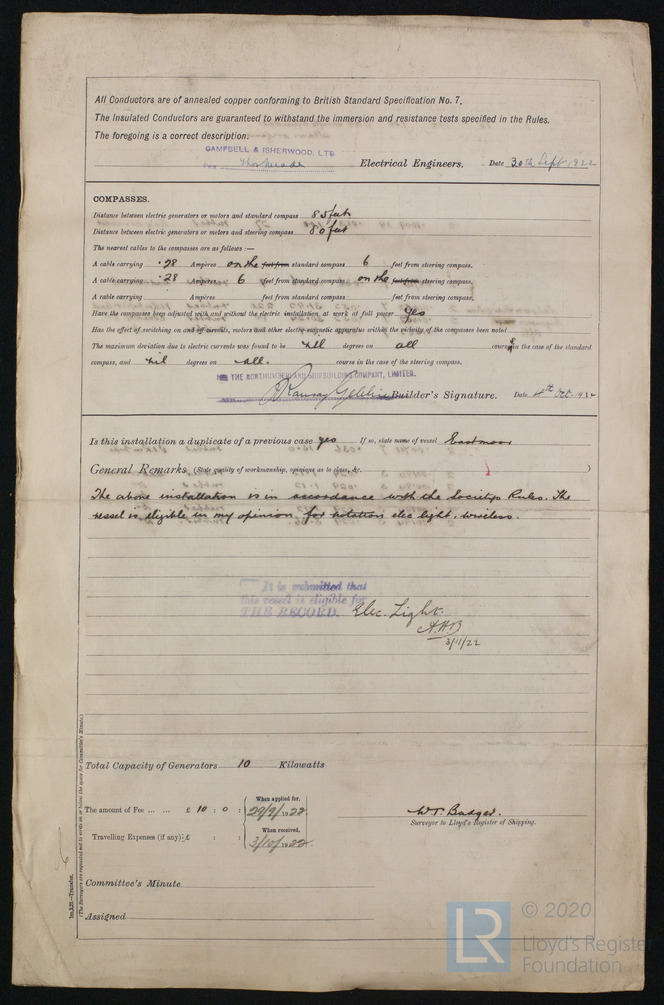 All Conductors are of annealed copper conforming to British Standard Specification No. 7.
The Insulated Conductors are guaranteed to withstand the immersion and resistance tests specified in the Rules.
The foregoing is a correct description.
CAMPBELL & ISHERWOOD, LTD
Electrical Engineers. Date 30th Sept 1922
COMPASSES.
Distance between electric generators or motors and standard compass 85 feet
Distance between electric generators or motors and steering compass 80 feet
The nearest cables to the compasses are as follows :—
A cable carrying .28 Ampères on the feet from standard compass 6 feet from steering compass.
A cable carrying .28 Ampères 6 feet from standard compass on the feet from steering compass.
A cable carrying Ampères feet from standard compass feet from steering compass.
Have the compasses been adjusted with and without the electric installation at work at full power yes
Has the effect of switching on and off circuits, motors and other electro-magnetic apparatus within the vicinity of the compasses been noted
The maximum deviation due to electric currents was found to be nil degrees on all course in the case of the standard
compass, and nil degrees on all. course in the case of the steering compass.
THE NORTHUMBERLAND SHIPBUILDING COMPANY, LIMITED.
Builder's Signature. Date 4th Oct. 1922
Is this installation a duplicate of a previous case yes If so, state name of vessel Eastmoor
General Remarks. (State quality of workmanship, opinions as to class, &c. )
The above installation is in accordance with the Societys Rules. The
vessel is eligible in my opinion for notation elec light, wireless.
It is submitted that
this vessel is eligible for
THE RECORD. Elec. Light.
3/11/22
Total Capacity of Generators 10 Kilowatts
The amount of Fee ... ... £ 10 : 0 : When applied for, 29/9/1922
Travelling Expenses (if any) £ : : When received, 3/10/1922.
W.T. Badger.
Surveyor to Lloyd's Register of Shipping.
Committee's Minute
Assigned
(The Surveyors are requested not to write on or below the space for Committee's Minute.)
LR
© 2020
Lloyd's Register
Foundation